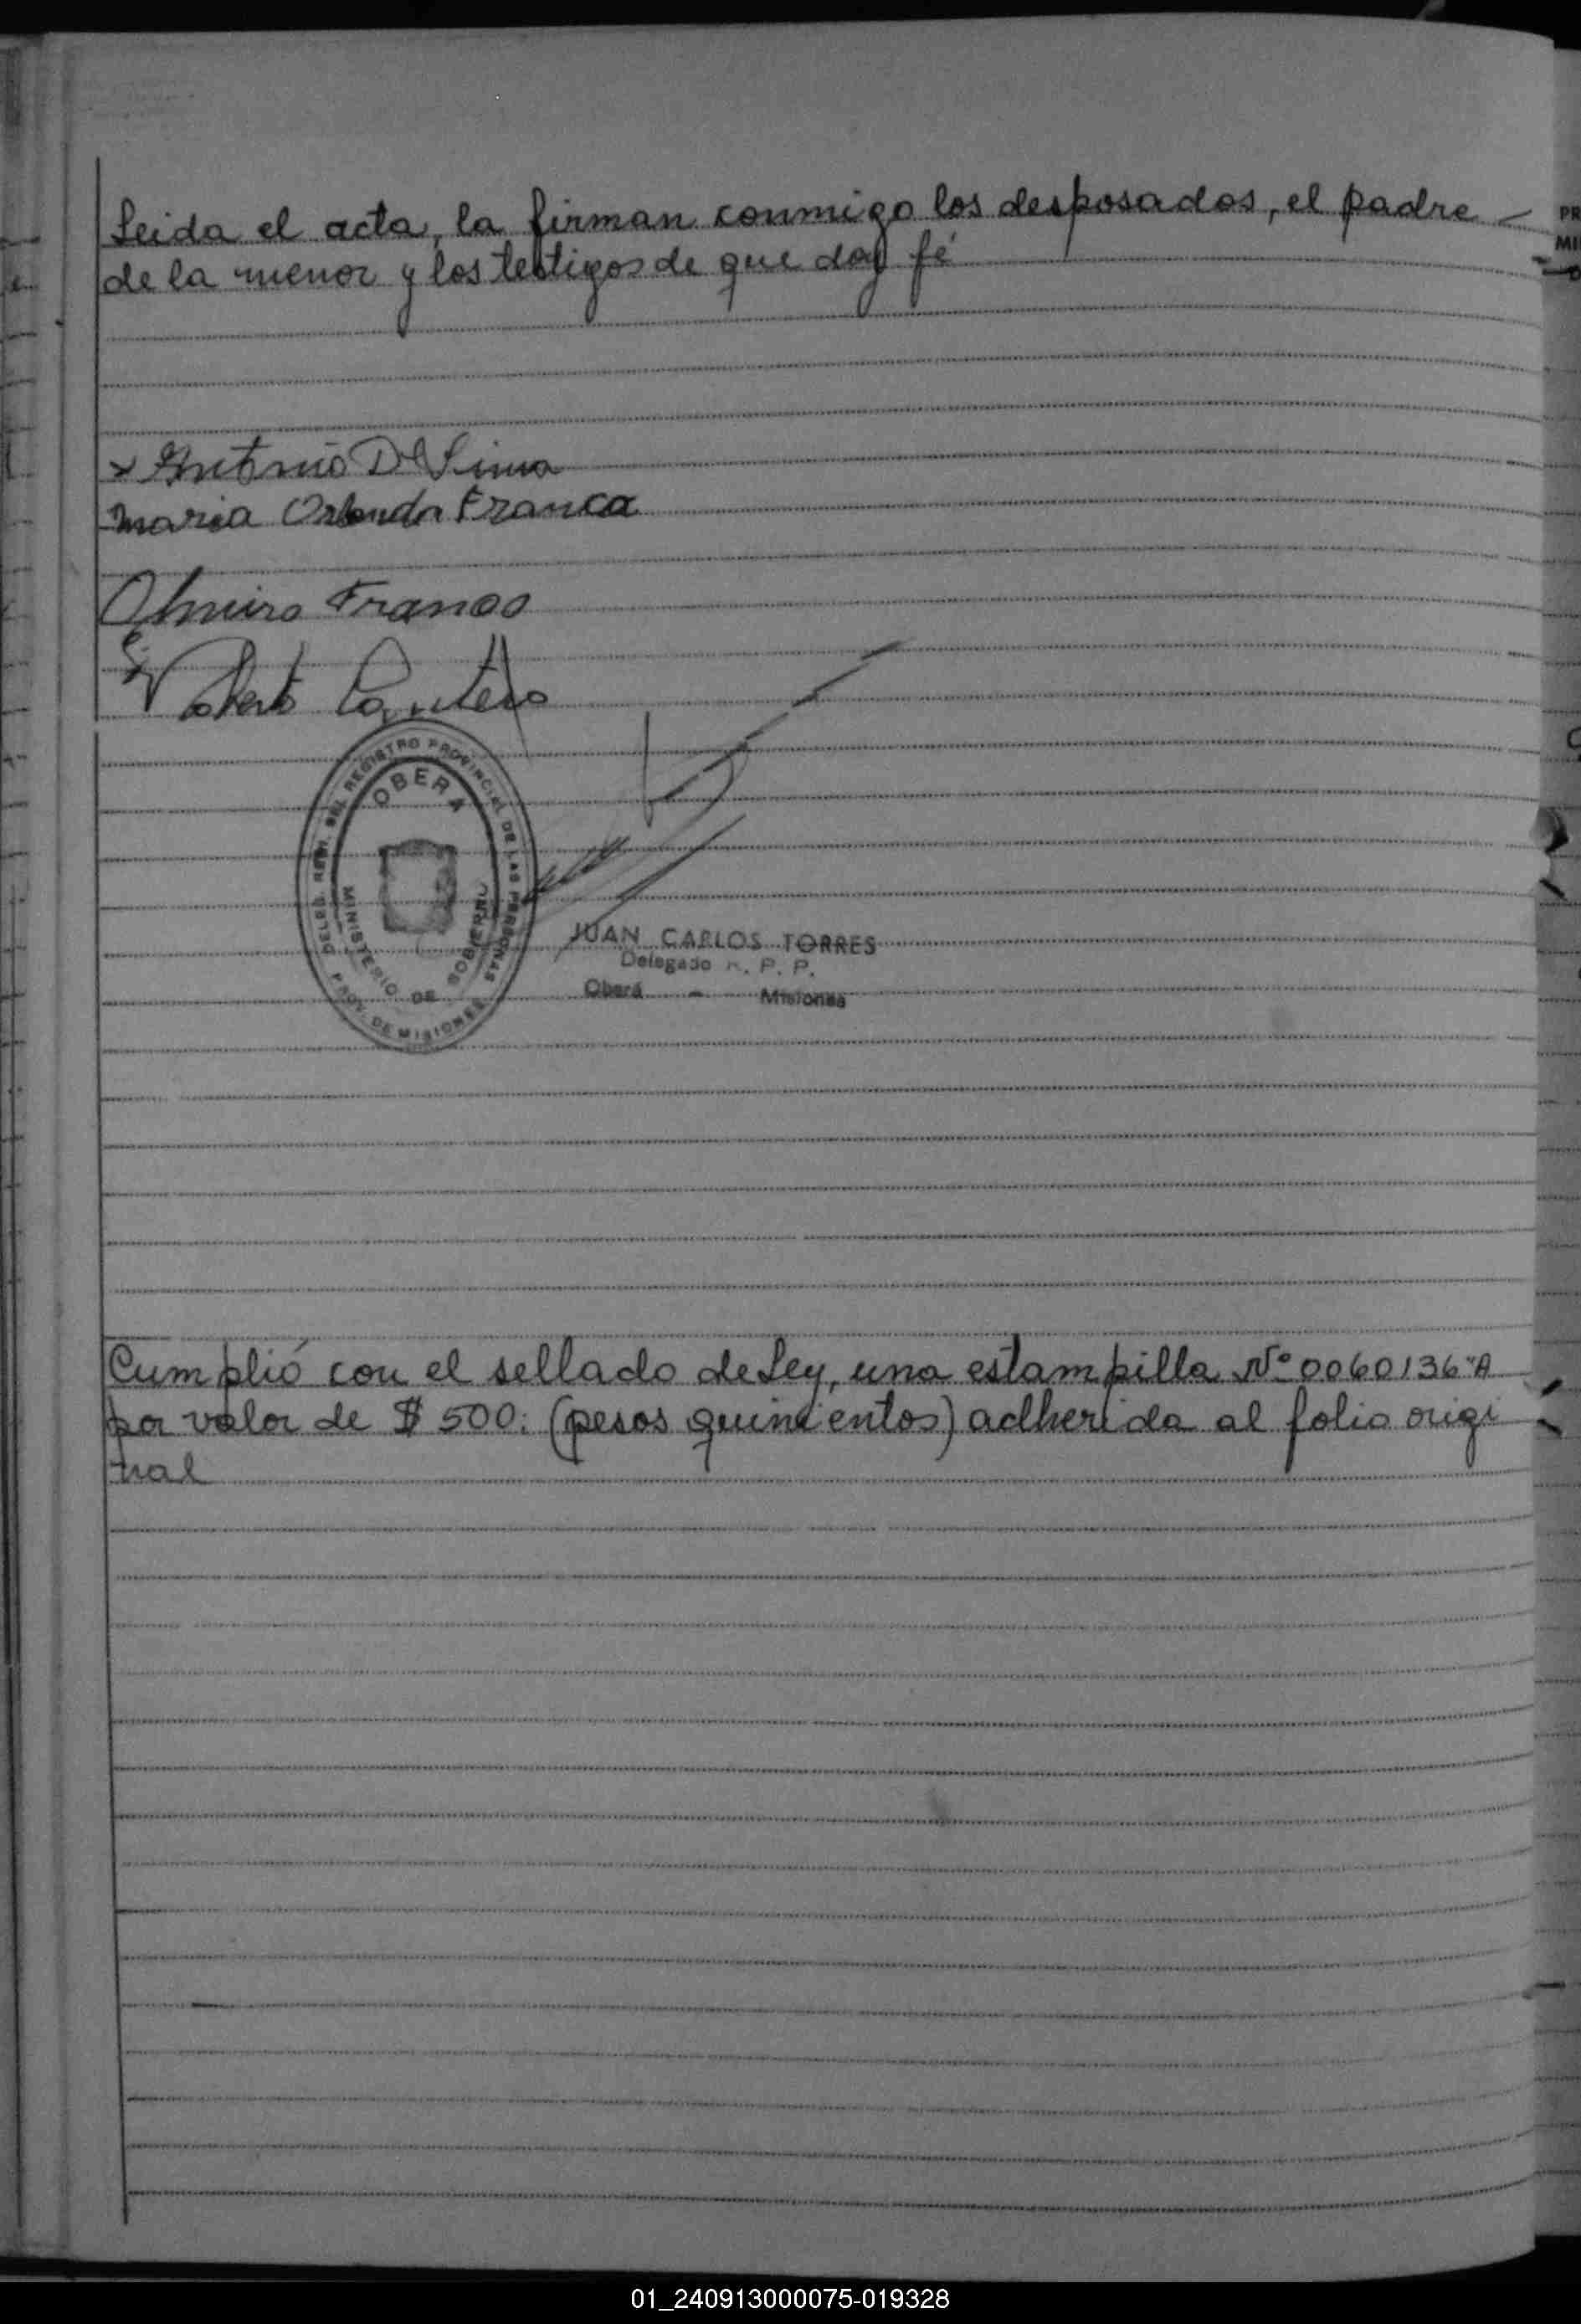 Leida el acta, la firman conmigo los desposados, el padre
de la menor y los testigos de que doy fé
x Antonio De Lima
Maria Orlanda Franca
Olmiro Franco
Roberto
DELEG. DEL REGISTRO PROVINCIAL DE LAS PERSONAS
OBERA
MINISTERIO DE GOBIERNO
PROV. DE MISIONES
JUAN CARLOS TORRES
Delegado R. P. P.
Oberá - Misiones
Cumplió con el sellado de Ley, una estampilla Nº 0060136 "A
por valor de $ 500. (pesos quinientos) adherida al folio origi
nal
PR
MI
01_240913000075-019328